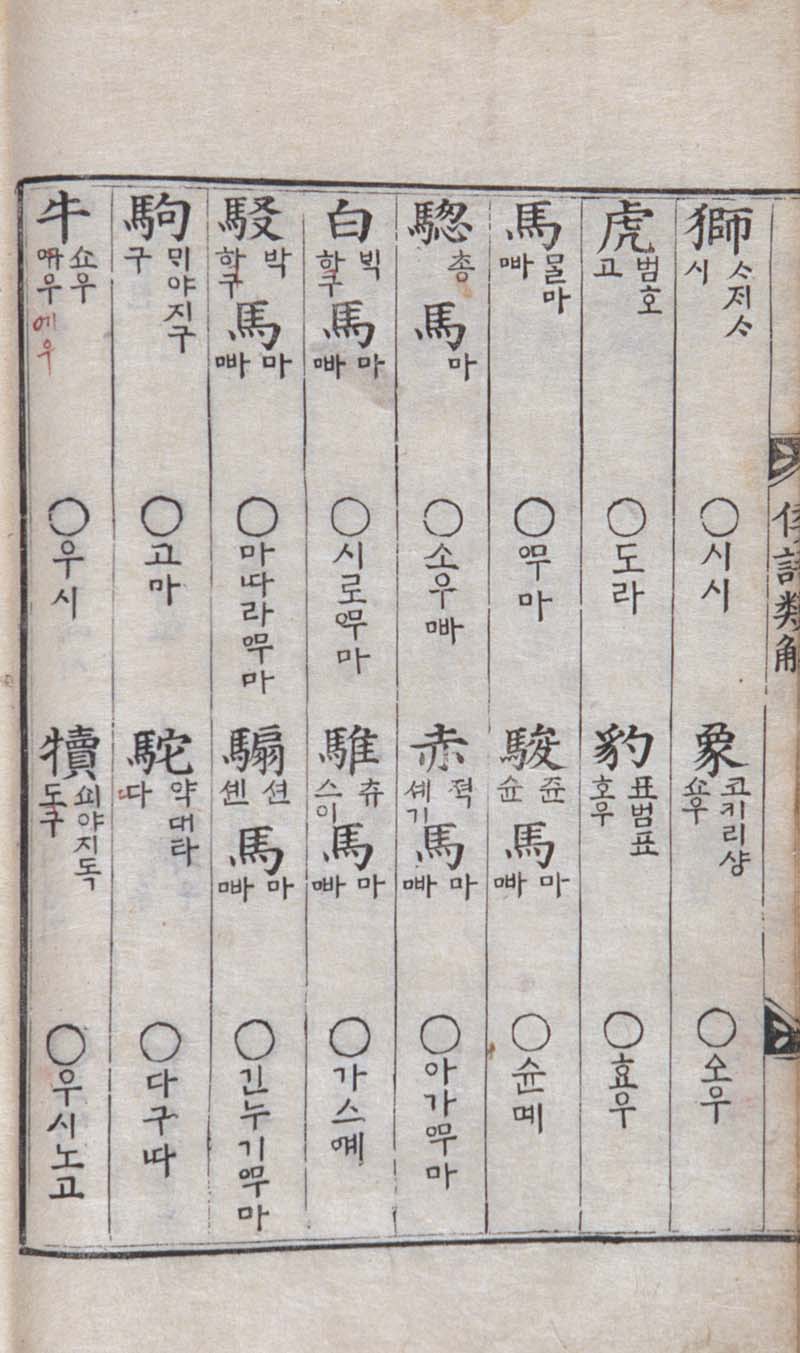 倭語類解
獅 ᄉᆞ저ᄉᆞ 시 ○시시 象 코키리샹 쇼우 ○소우
虎 범호 고 ○도라 豹 표범표 호우 ○효우
馬 ᄆᆞᆯ마 ᄜᅡ ○ᅃᅮ마 駿 쥰 슌 馬 마 ᄜᅡ ○슌몌
驄 총 馬 마 ○소우ᄜᅡ 赤 젹 셰기 馬 마 ᄜᅡ ○아가ᅃᅮ마
白 ᄇᆡᆨ 학구 馬 마 ᄜᅡ ○시로ᅃᅮ마 騅 츄 스이 馬 마 ᄜᅡ ○가스ᅁᅨ
駁 박 학구 馬 마 ᄜᅡ ○마ᄕᅡ라ᅃᅮ마 騸 션 셴 馬 마 ᄜᅡ ○긴누기ᅃᅮ마
駒 ᄆᆡ야지구 구 ○고마 駝 약대타 다 ○다구ᄕᅡ
牛 쇼우 우 에우 ○우시 犢 쇠야지독 도구 ○우시노고